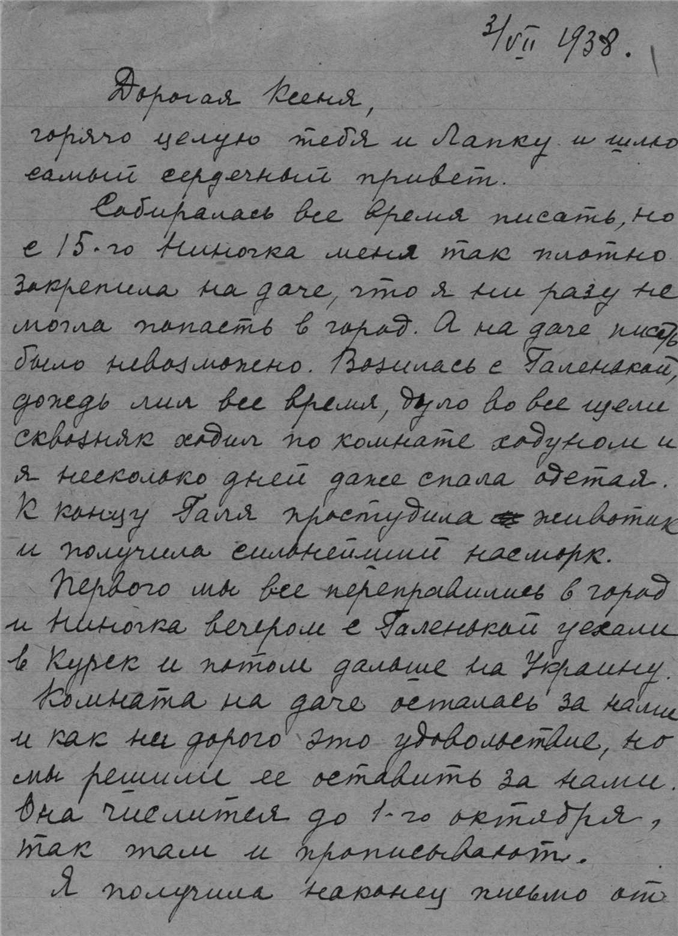 3/VII 1938.
Дорогая Ксеня,
горячо целую тебя и Лапку и шлю
самый сердечный привет.
Собиралась все время писать, но
с 15-го Ниночка меня так плотно
закрепила на даче, что я ни разу не
могла попасть в город. А на даче писать
было невозможно. Возилась с Галенькой,
дождь лил все время, дуло во все щели
сквозняк ходил по комнате ходуном и
я несколько дней даже спала одетая.
К концу Галя простудила животик
и получила сильнейший насморк.
Первого мы все переправились в город
и Ниночка вечером с Галенькой уехали
в Курск и потом дальше на Украину.
Комната на даче осталась за нами
и как ни дорого это удовольствие, но
мы решили ее оставить за нами.
Она числится до 1-го октября,
так там и прописывают.
Я получила наконец письмо от